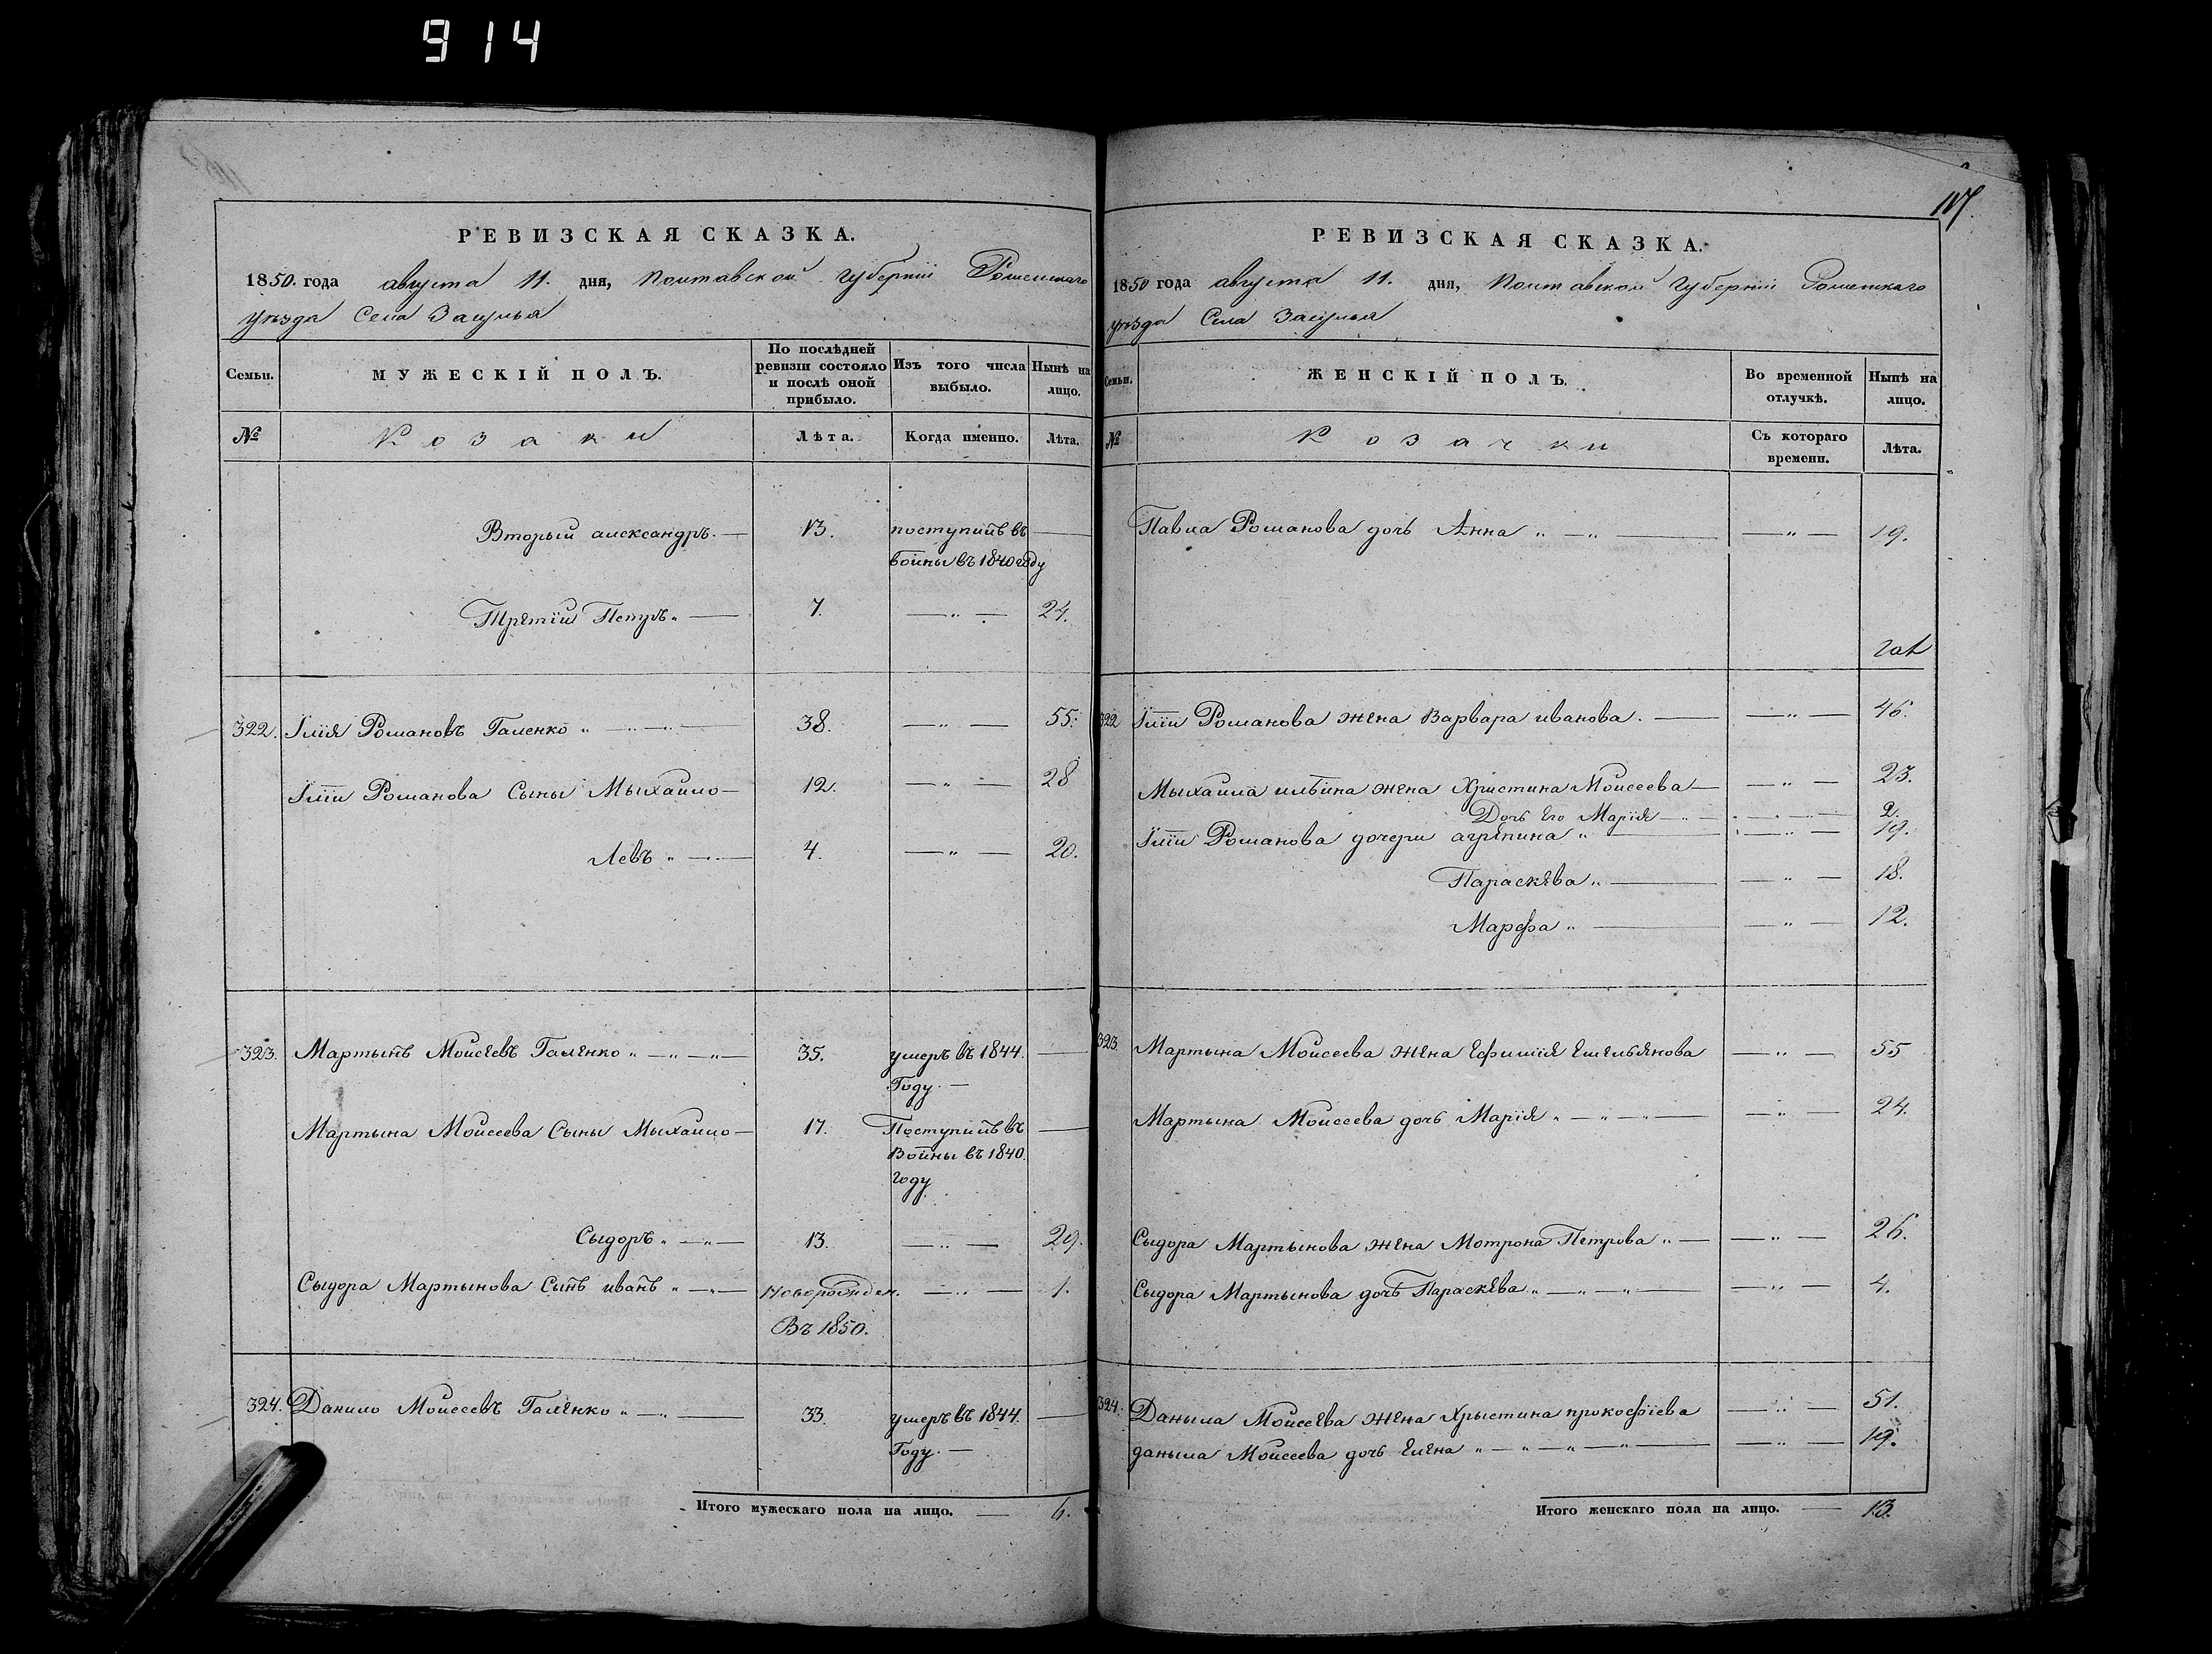 914
РЕВИЗСКАЯ СКАЗКА.
1850. года августа 11. дня, Полтавской губерніи Роменскаго
уѣзда Села Засулья
Семьи.
МУЖЕСКІЙ ПОЛЪ.
По послѣдней ревизіи состояло и послѣ оной прибыло.
Изъ того числа выбыло.
Нынѣ на лицо.
№
Козаки
Лѣта.
Когда именно.
Лѣта.
Вторый александръ. 13. поступилъ въ
войны въ 1840 году
Третій Петръ 7. 24.
322. Ілія Романовъ Галенко 38. 55.
Іліи Романова Сыны Мыхайло 12. 28
Левъ 4. 20.
323. Мартынъ Моисеевъ Галенко 35. умеръ въ 1844.
Году.
Мартына Моисеева Сыны Мыхайло 17. Поступилъ въ
Войны въ 1840.
году
Сыдоръ 13. 29.
Сыдора Мартынова Сынъ иванъ новорожден. 1.
Въ 1850.
324. Данило Моисеевъ Галенко 33. умеръ въ 1844.
Году.
Итого мужескаго пола на лицо. 6.
117.
РЕВИЗСКАЯ СКАЗКА.
1850 года августа 11. дня, Полтавской Губерніи Роменскаго
уѣзда Села Засулья
Семьи.
ЖЕНСКІЙ ПОЛЪ.
Во временной отлучкѣ.
Нынѣ на лицо.
№
Козачки
Съ котораго времени.
Лѣта.
Павла Романова дочь Анна 19.
322 Іліи Романова жена Варвара иванова. 46.
Мыхаила ильина жена Христина Моисеева 23.
Дочь Его Марія 2.
Іліи Романова дочери агрепина 19.
Параскева 18.
Марфа 12.
323. Мартына Моисеева жена Ефимія Емельянова 55
Мартына Моисеева дочь Марія 24.
Сыдора Мартынова жена Мотрона Петрова 26.
Сыдора Мартынова дочь Параскева 4.
324. Даныла Моисеева жена Хрыстина прокофіева 51.
даныла Моисеева дочь Елена 19.
Итого женскаго пола на лицо. 13.